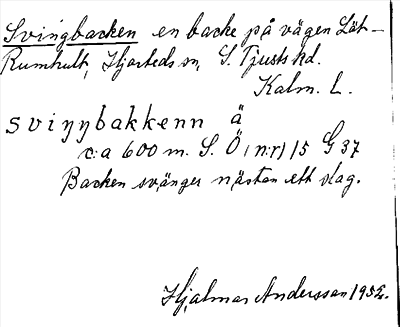 Svingbacken en backe på vägen Löt-
Rumhult, Hjorteds sn, S. Tjusts hd.
Kalm. L.
sviŋŋbakkenn ä
c:a 600 m. S. Ö, (n:r) 15 G 37
Backen svänger nästan ett slag.
Hjalmar Andersson 1952.